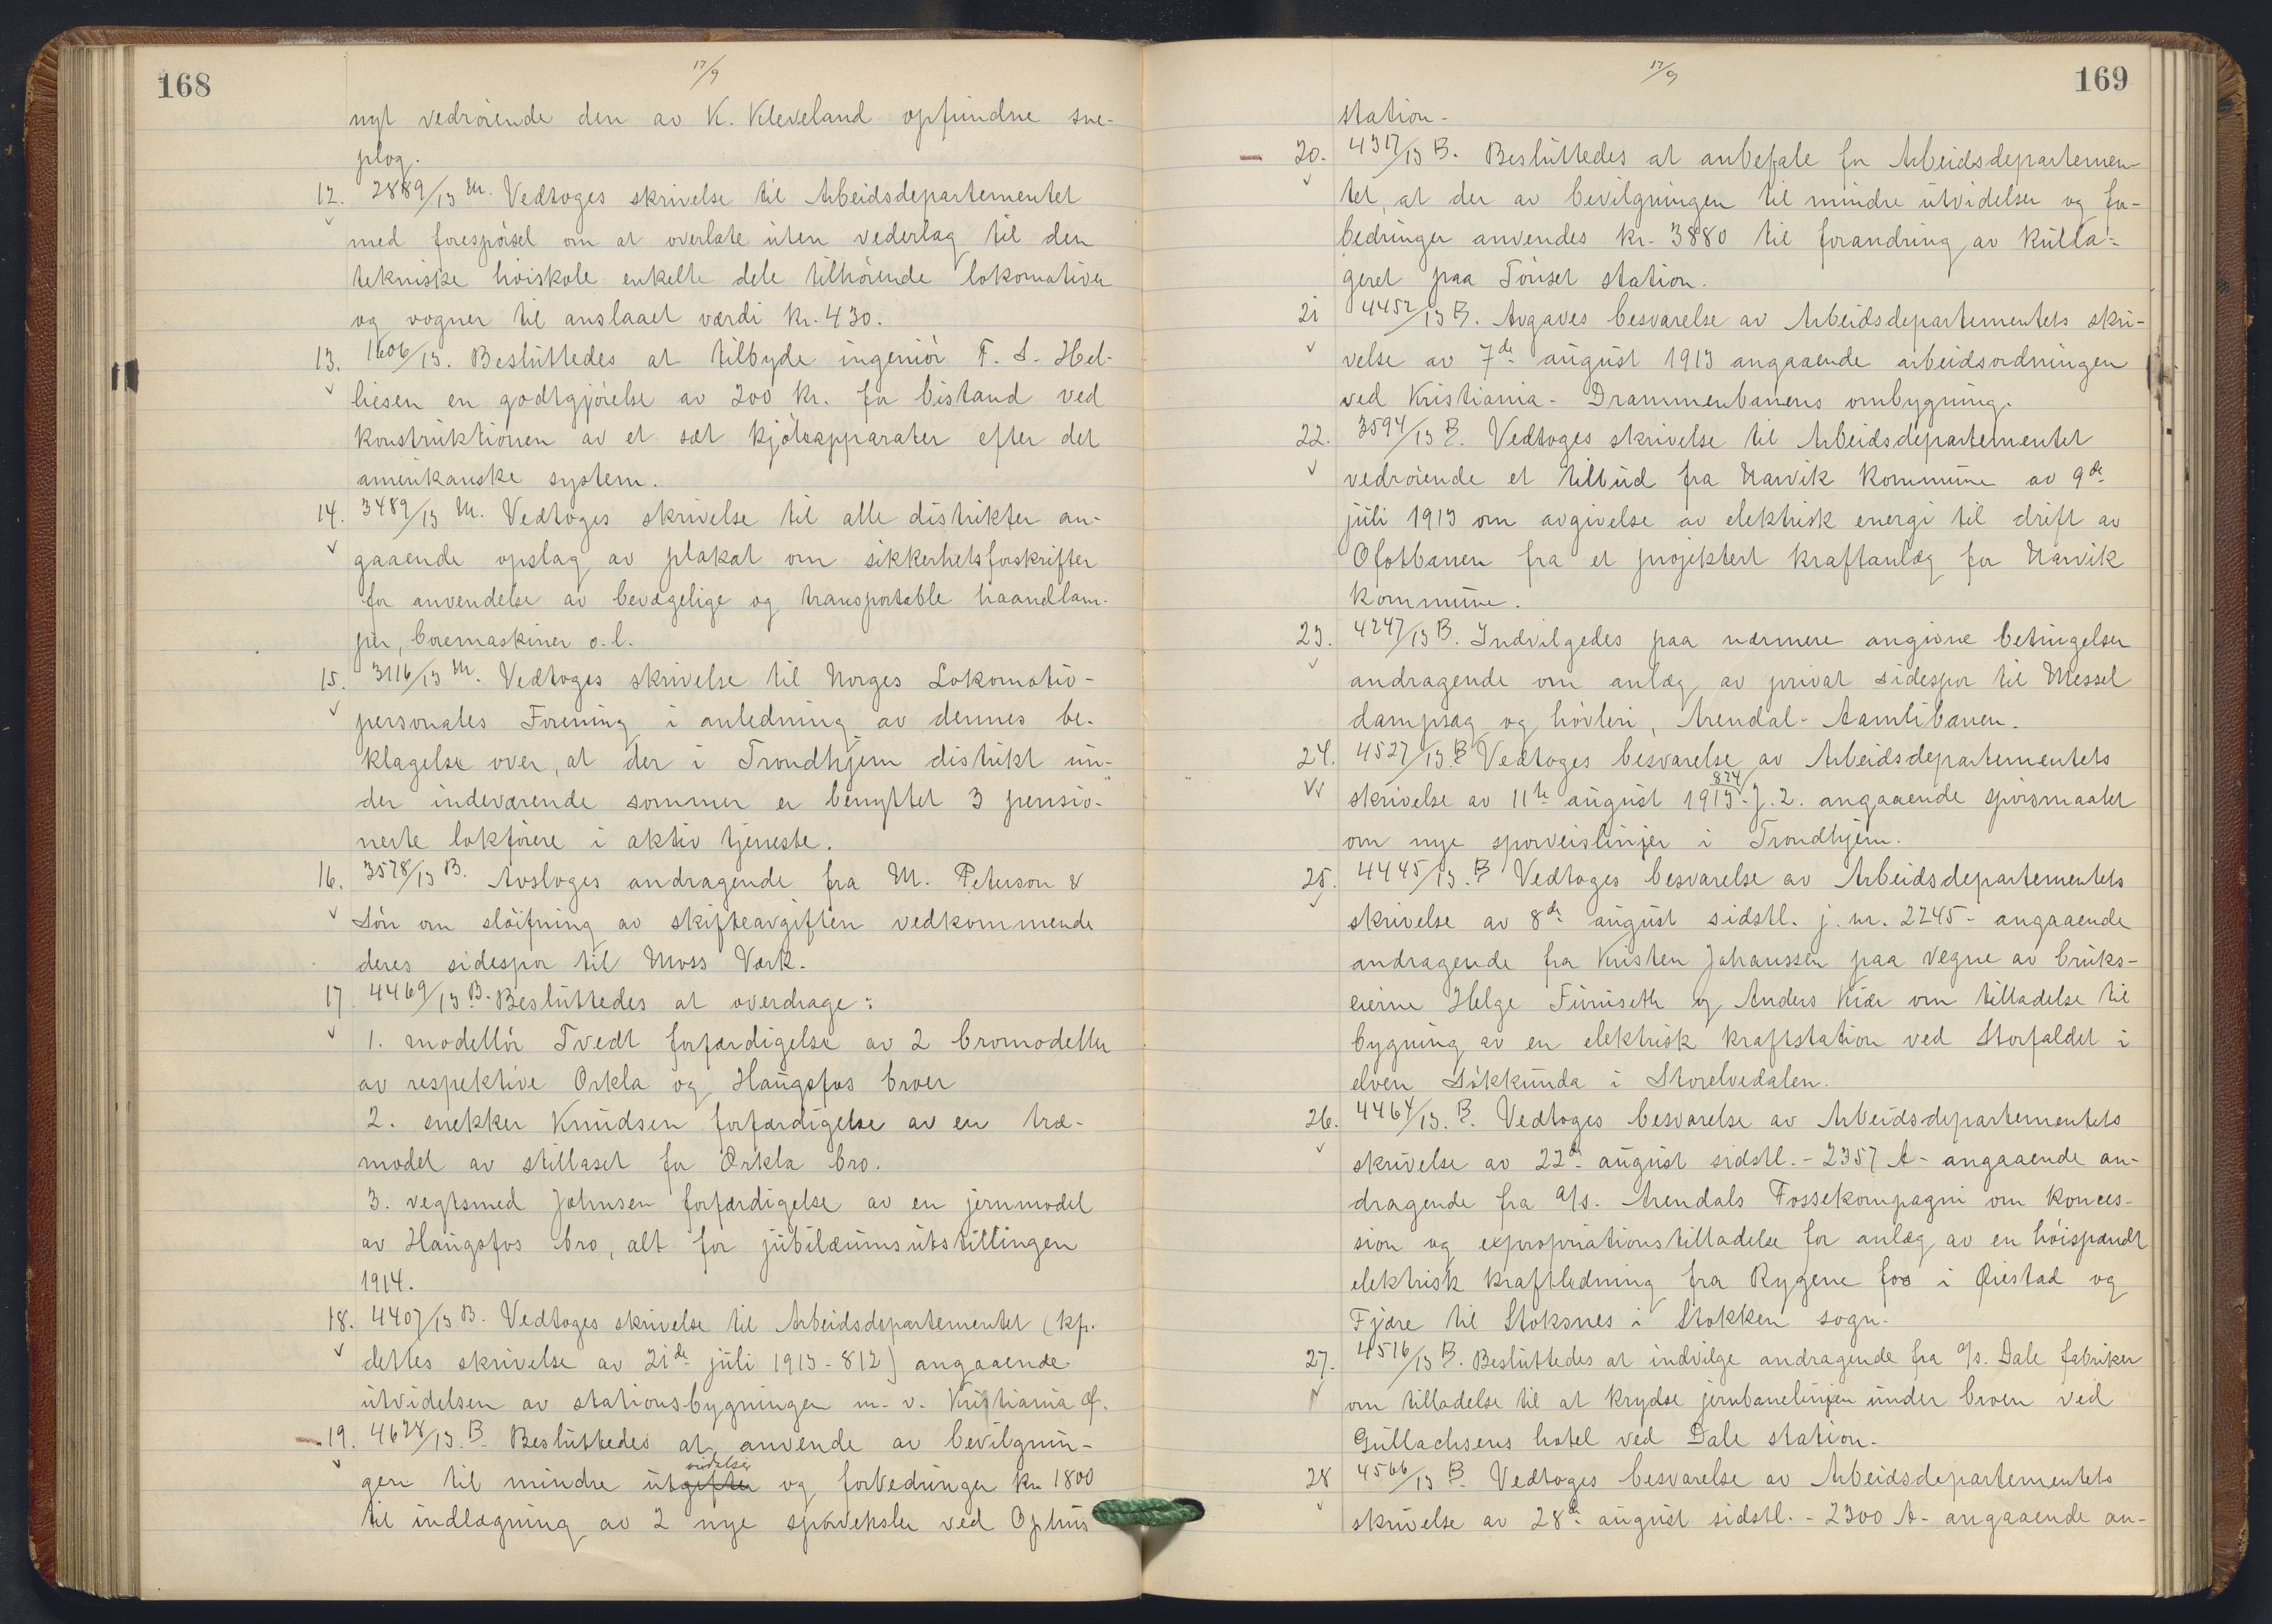 168
17/9
nyt vedrørende den av K. Kleveland opfundne sne-
plog.
12. 2889/13 M. Vedtoges skrivelse til Arbeidsdepartementet
med forespørsel om at overlate uten vederlag til den
tekniske høiskole enkelte dele tilhørende lokomotiver
og vogner til anslaaet værdi kr. 430.
13. 1606/13. Besluttedes at tilbyde ingeniør F. S. Hel-
liesen en godtgjørelse av 200 kr. for bistand ved
konstruktionen av et sæt kjøleapparater efter det
amerikanske system.
14. 3489/13 M. Vedtoges skrivelse til alle distrikter an-
gaaende opslag av plakat om sikkerhetsforskrifter
for anvendelse av bevægelige og transportable haandlam-
per, boremaskiner o.l.
15. 3116/13 M. Vedtoges skrivelse til Norges Lokomotiv-
personales Forening i anledning av dennes be-
klagelse over, at der i Trondhjem distrikt un-
der indeværende sommer er benyttet 3 pensio-
nerte lokførere i aktiv tjeneste.
16. 3578/13 B. Avsloges andragende fra M. Peterson &
Søn om sløifning av skifteavgiften vedkommende
deres sidespor til Moss Værk.
17. 4469/13 B. Besluttedes at overdrage:
1. modellør Tvedt forfærdigelse av 2 bromodeller
av respektive Orkla og Haugsfos broer
2. snekker Knudsen forfærdigelse av en træ-
model av stillaset for Orkla bro.
3. vegtsmed Johnsen forfærdigelse av en jernmodel
av Haugsfos bro, alt for jubilæumsutstillingen
1914.
18. 4407/13 B. Vedtoges skrivelse til Arbeidsdepartementet (kfr.
dettes skrivelse av 21de juli 1913 - 812) angaaende
utvidelsen av stationsbygningen m.v. Kristiania Ø.
19. 4628/13. B. Besluttedes at anvende av bevilgnin-
videlser
gen til mindre utgifter og forbedringer kr. 1800
til indlægning av 2 nye sporveksler ved Ophus
169
17/9
station.
20. 4317/13 B. Besluttedes at anbefale for Arbeidsdepartemen-
tet, at der av bevilgningen til mindre utvidelser og for-
bedringer anvendes kr. 3880 til forandring av kulla-
geret paa Tønset station.
21 4452/13 B. Avgaves besvarelse av Arbeidsdepartementets skri-
velse av 7de august 1913 angaaende arbeidsordningen
ved Kristiania - Drammenbanens ombygning.
22. 3594/13 B. Vedtoges skrivelse til Arbeidsdepartementet
vedrørende et tilbud fra Narvik kommune av 9de
juli 1913 om avgivelse av elektrisk energi til drift av
Ofotbanen fra et projektert kraftanlæg for Narvik
kommune.
23. 4247/13 B. Indvilgedes paa nærmere angivne betingelser
andragende om anlæg av privat sidespor til Messel
dampsag og høvleri, Arendal - Aamlibanen.
24. 4527/13. B Vedtoges besvarelse av Arbeidsdepartementets
874
skrivelse av 11te august 1913 - J. 2. angaaende spørsmaalet
om nye sporveislinjer i Trondhjem.
25. 4445/13. B Vedtoges besvarelse av Arbeidsdepartementets
skrivelse av 8de august sidstl. j. nr. 2245 - angaaende
andragende fra Kristen Johanssen paa vegne av bruks-
eierne Helge Furuseth og Anders Kiær om tilladelse til
bygning av en elektrisk kraftstation ved Storfaldet i
elven Søkkunda i Storelvedalen.
26. 4464/13. B. Vedtoges besvarelse av Arbeidsdepartementets
skrivelse av 22de august sidstl. - 2357 A - angaaende an-
dragende fra A/s. Arendals Fossekompagni om konces-
sion og expropriationstilladelse for anlæg av en høispændt
elektrisk kraftledning fra Rygene fos i Øiestad og
Fjære til Stoksnes i Stokken sogn.
27. 4516/13 B. Besluttedes at indvilge andragende fra A/s. Dale fabriker
om tilladelse til at krydse jernbanelinjen under broen ved
Gullachsens hotel ved Dale station.
28 4566/13 B. Vedtoges besvarelse av Arbeidsdepartementets
skrivelse av 28de august sidstl. - 2300 A - angaaende an-